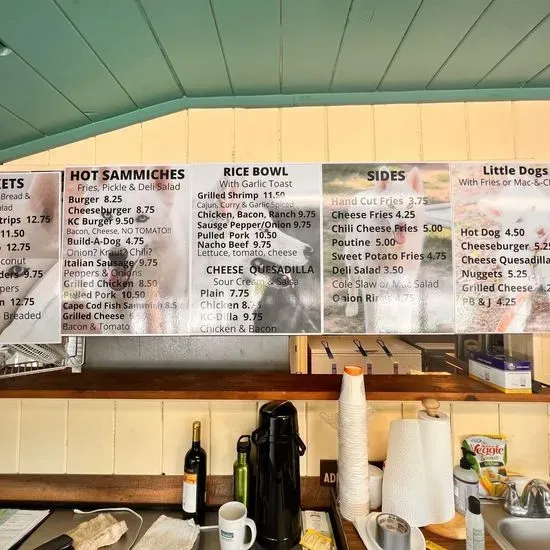 KETS
Bread &
lad
trips 12.75
11.50
p 12.75
conut
ders 9.75
ppers
n 12.75
Breaded
HOT SAMMICHES
Fries, Pickle & Deli Salad
Burger 8.25
Cheeseburger 8.75
KC Burger 9.50
Bacon, Cheese, NO TOMATO!!
Build-A-Dog 4.75
Onion? Kraut? Chili?
Italian Sausage 9.75
Peppers & Onions
Grilled Chicken 8.50
Pulled Pork 10.50
Cape Cod Fish Sammich 8.5
Grilled Cheese 6.75
Bacon & Tomato
RICE BOWL
With Garlic Toast
Grilled Shrimp 11.50
Cajun, Curry & Garlic Spiced
Chicken, Bacon, Ranch 9.75
Sausge Pepper/Onion 9.75
Pulled Pork 10.50
Nacho Beef 9.75
Lettuce, tomato, cheese
CHEESE QUESADILLA
Sour Cream & Salsa
Plain 7.75
Chicken 8.75
KC-Dilla 9.75
Chicken & Bacon
SIDES
Hand Cut Fries 3.75
Cheese Fries 4.25
Chili Cheese Fries 5.00
Poutine 5.00
Sweet Potato Fries 4.75
Deli Salad 3.50
Cole Slaw or Mac Salad
Onion Rings
Little Dogs
With Fries or Mac-&-C
Hot Dog 4.50
Cheeseburger 5.25
Cheese Quesadilla
Nuggets 5.25
Grilled Cheese
PB & J 4.25
Veggie
AD